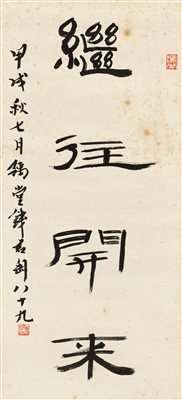 繼往開来
甲戌秋七月錫堂錢君匋八十九